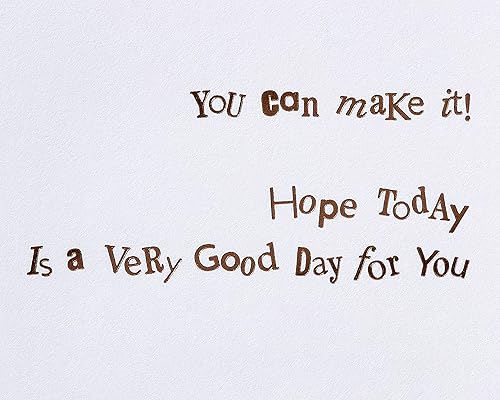 YoU can maKe it!
Hope TodAy
Is a VeRy Good Day for You